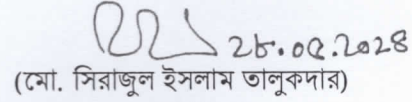 ২৮.০৫.২০২৪
(মো. সিরাজুল ইসলাম তালুকদার)